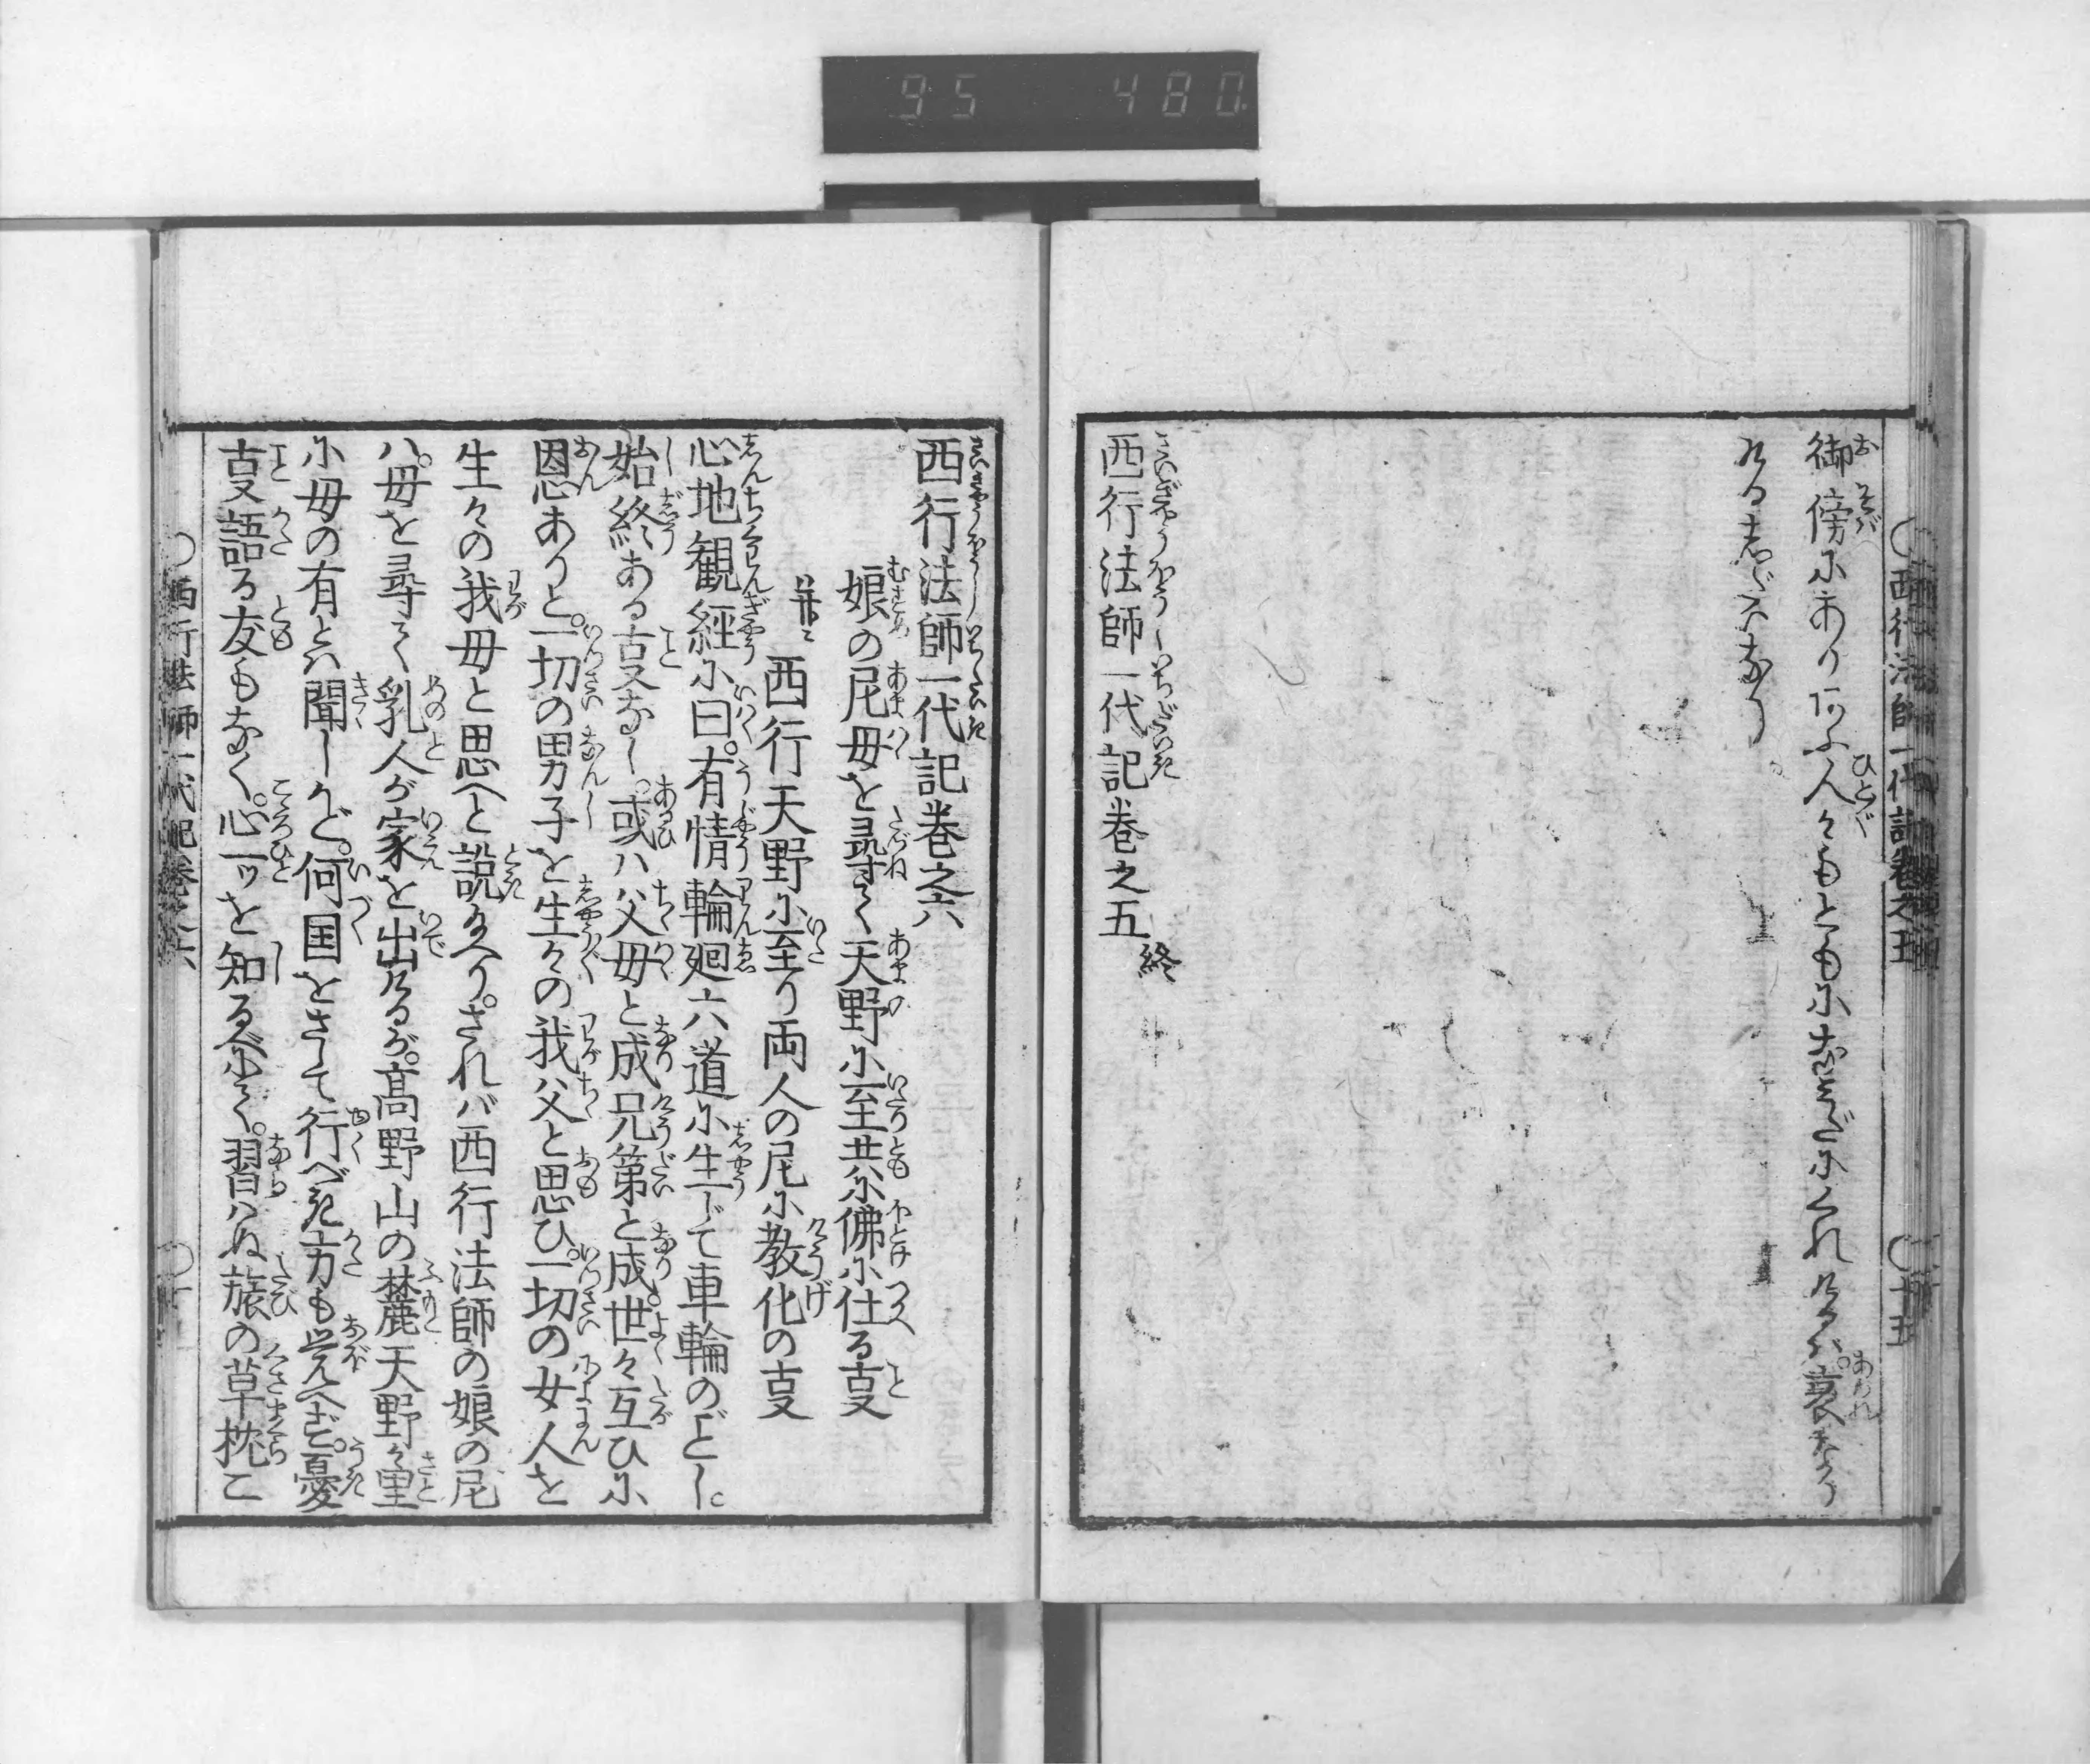 95 480
西行法師一代記巻之五 十五
御傍にあり仕ふ人々もともになみだにくれけるハ。哀なり
ける志だいなり。
西行法師一代記巻之五終
西行法師一代記巻之六
娘の尼母を尋て天野に至共に佛に仕る叓
并ニ西行天野に至り両人の尼に教化の叓
心地観經に曰。有情輪廻六道に生じて車輪のごとし。
始終ある叓なし。或ハ父母と成兄第と成。世々互ひに
恩ありと。一切の男子を生々の我父と思ひ。一切の女人を
生々の我母と思へと説給へり。されバ西行法師の娘の尼
ハ。母を尋て乳人が家を出けるが。高野山の麓天野が里
に母の有とハ聞しかど。何国をさして行べき方も覚へず。憂
叓語る友もなく。心一ツを知るべにて。習ハぬ旅の草枕こ
西行法師一代記巻之六